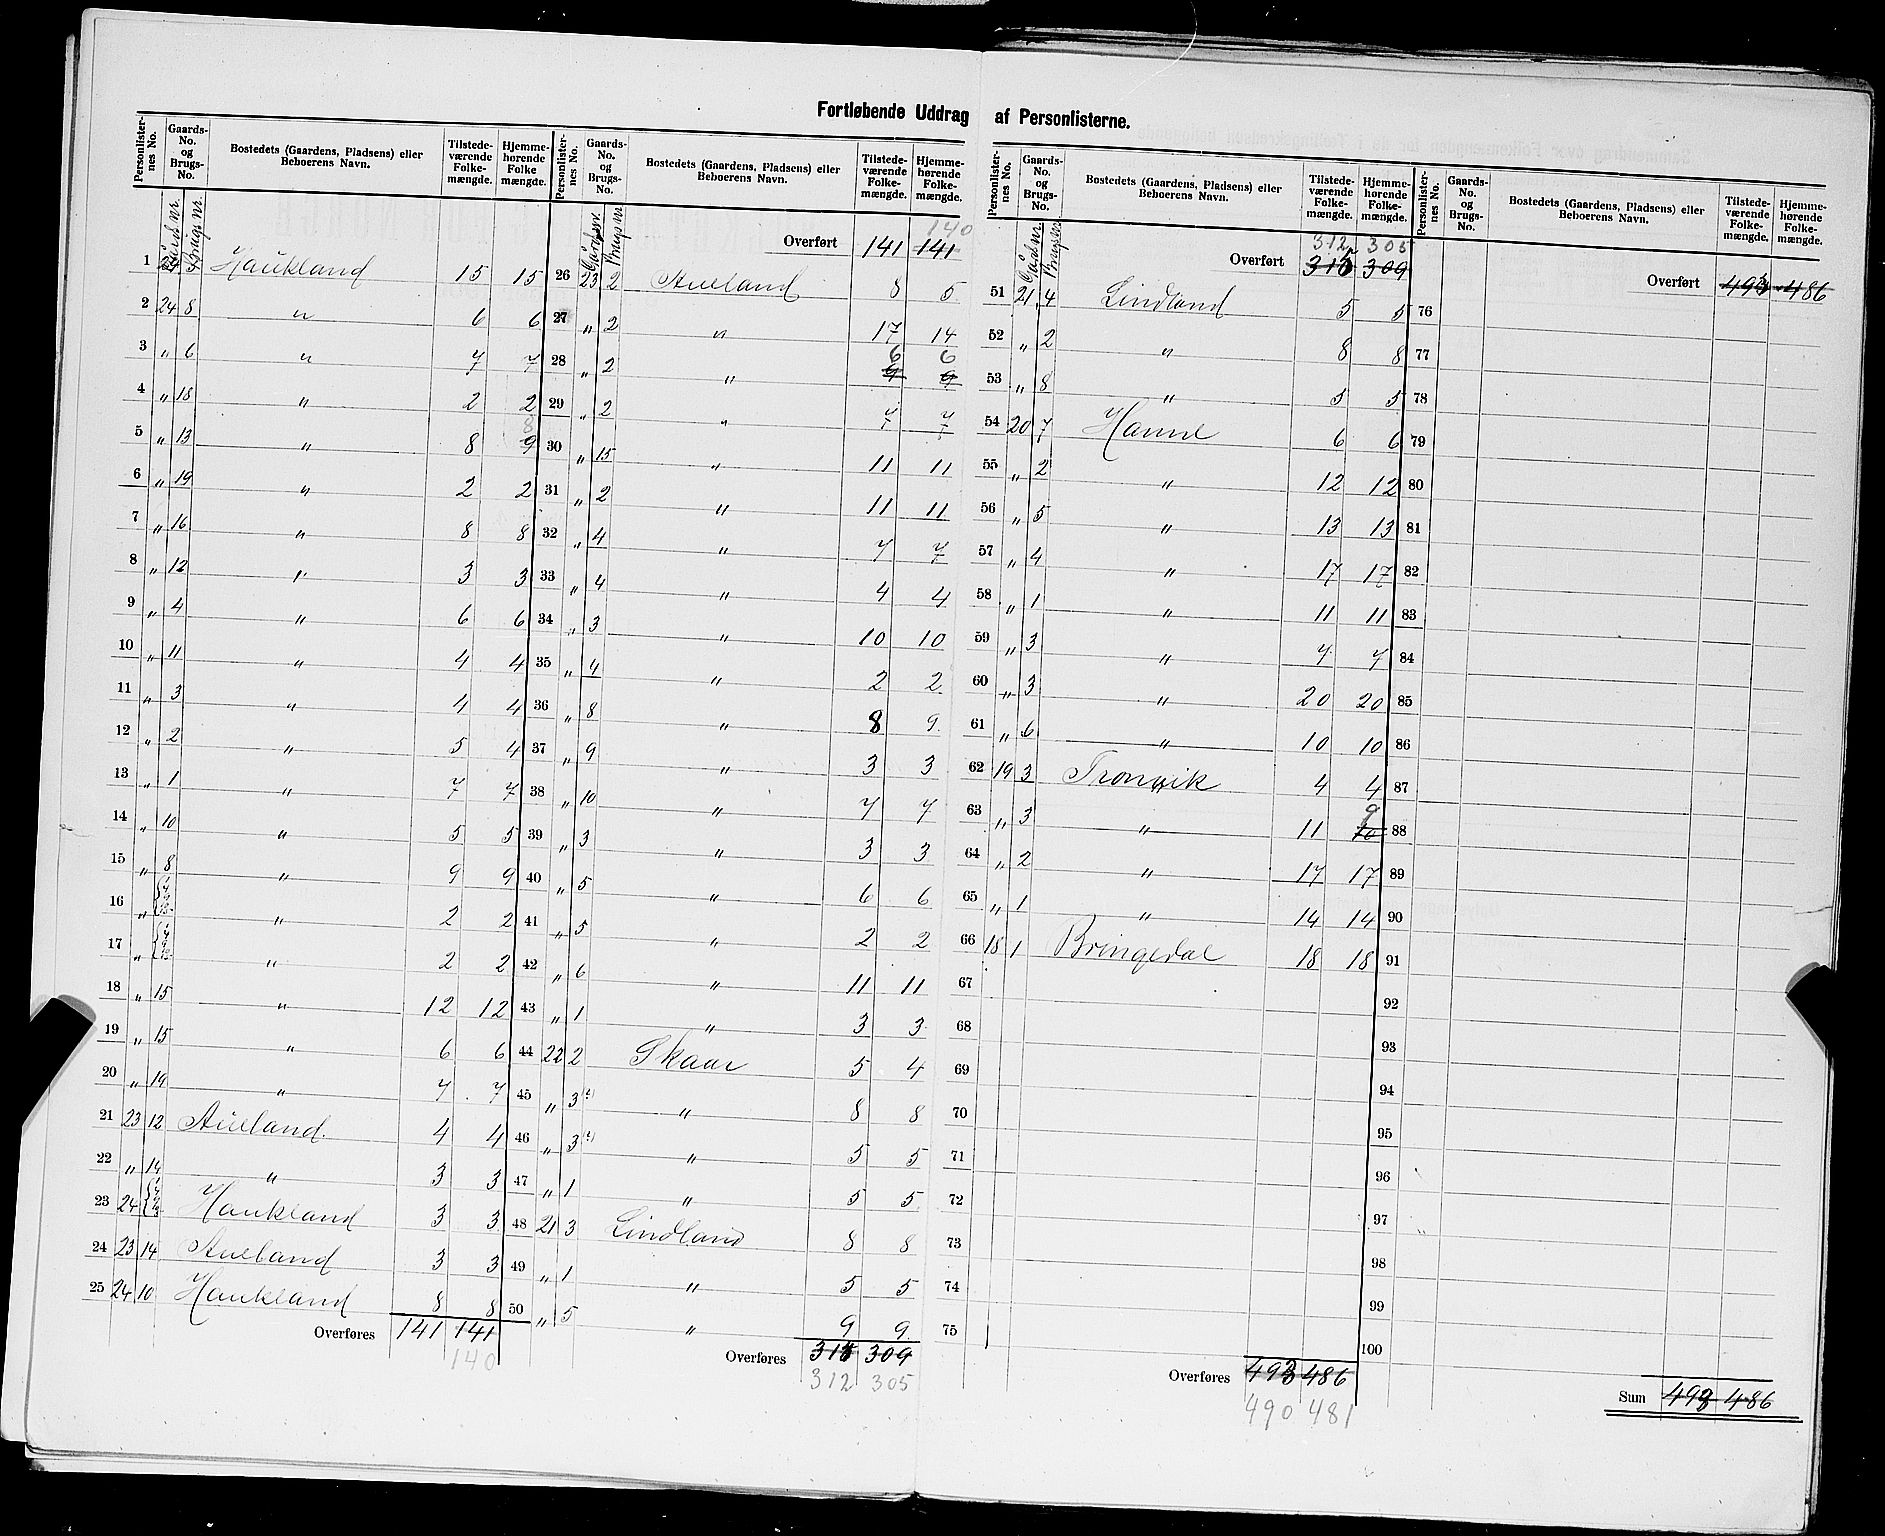 Fortløbende Uddrag af Personlisterne.
Personlister-nes No. | Gaards-No. og Brugs-No. | Bostedets (Gaardens, Pladsens) eller Beboerens Navn. | Tilstede-værende Folke-mængde. | Hjemme-hørende Folke mængde.
Gårdsnr. Brugsnr.
1 Haukland 15 15
2 24 8 " 6 6
3 " 6 " 7 7
4 " 18 " 2 2
8
5 " 13 " 8 9
6 " 19 " 2 2
7 " 16 " 8 8
8 " 12 " 3 3
9 " 4 " 6 6
10 " 11 " 4 4
11 " 3 " 4 4
12 " 2 " 5 4
13 " 1 " 7 7
14 " 10 " 5 5
15 " 8 " 9 9
16 " " 2 2
17 " " 2 2
18 " 15 " 12 12
19 " 15 " 6 6
20 " 14 " 7 7
21 23 12 Aueland. 4 4
22 " 14 " 3 3
23 24 Haukland 3 3
24 23 14 Aueland 3 3
25 24 10 Haukland 8 8
Overføres 141 141
140
Personlister-nes No. | Gaards-No. og Brugs-No. | Bostedets (Gaardens, Pladsens) eller Beboerens Navn. | Tilstede-værende Folke-mængde. | Hjemme-hørende Folke-mængde.
140
Overført 141 141
26 23 2 Aueland 8 5
27 " 2 " 17 14
6 6
28 " 2 " 9 9
29 " 2 " 7 7
30 " 15 " 11 11
31 " 2 " 11 11
32 " 4 " 7 7
33 " 4 " 4 4
34 " 3 " 10 10
35 " 4 " 2 2
36 " 8 " 8 9
37 " 9 " 3 3
38 " 10 " 7 7
39 " 3 " 3 3
40 " 5 " 6 6
41 " 5 " 2 2
42 " 6 " 11 11
43 " 1 " 3 3
44 22 2 Skaar 5 4
45 " 3 " 8 8
46 " 3 " 5 5
47 " 1 " 5 5
48 21 3 Lindland 8 8
49 " 1 " 5 5
50 " 5 " 9 9
Overføres 315 309
312 305
Personlister-nes No. | Gaards-No. og Brugs-No. | Bostedets (Gaardens, Pladsens) eller Beboerens Navn. | Tilstede-værende Folke-mængde. | Hjemme-hørende Folke-mængde.
Gårdsnr. Brugsnr.
312 305
Overført 315 309
51 21 4 Lindland 5 5
52 " 2 " 8 8
53 " 8 " 5 5
54 20 7 Hamre 6 6
55 " 2 " 12 12
56 " 5 " 13 13
57 " 4 " 17 17
58 " 1 " 11 11
59 " 3 " 7 7
60 " 3 " 20 20
61 " 6 " 10 10
62 19 3 Tronvik 4 4
9
63 " 3 " 11 10
64 " 2 " 17 17
65 " 1 " 14 14
66 18 1 Bringedal 18 18
67
68
69
70
71
72
73
74
75
Overføres 493 486
490 481
Personlister-nes No. | Gaards-No. og Brugs-No. | Bostedets (Gaardens, Pladsens) eller Beboerens Navn. | Tilstede-værende Folke-mængde. | Hjemme-hørende Folke-mængde.
Overført 493 486
76
77
78
79
80
81
82
83
84
85
86
87
88
89
90
91
92
93
94
95
96
97
98
99
100
Sum 493 486